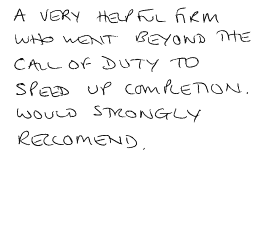 A VERY HELPFUL FIRM
WHO WENT BEYOND THE
CALL OF DUTY TO
SPEED UP COMPLETION.
WOULD STRONGLY
RECCOMEND.